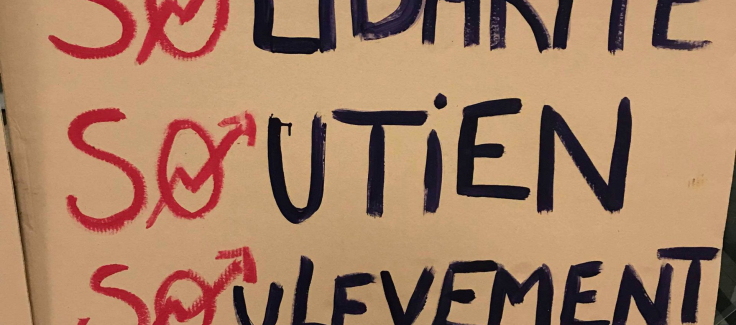 SOLIDARITÉ
SOUTIEN
SOULEVEMENT